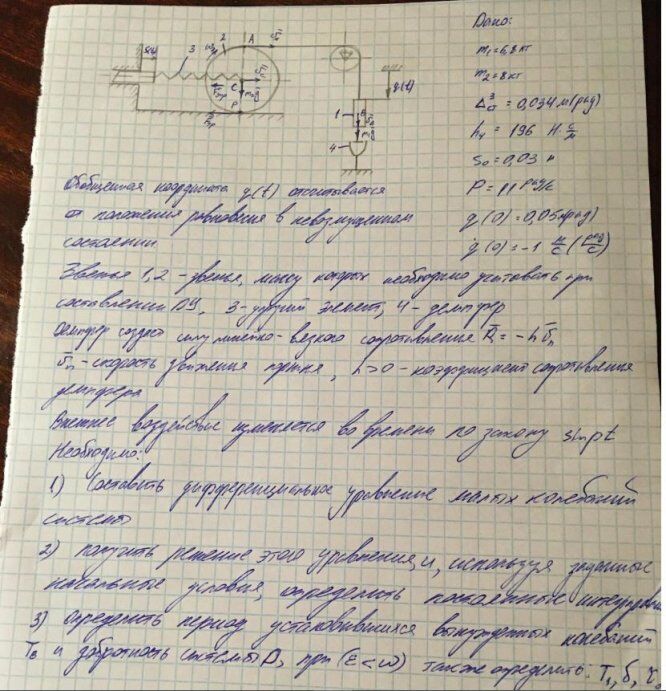 Дано:
m₁ = 6,8 кг
m₂ = 8 кг
Δ³ст = 0,034 м (рад)
h₄ = 196 Н·с/м
S₀ = 0,03 м
P = 11 рад/с
q(0) = 0,05 м (рад)
q̇(0) = -1 м/с (рад/с)
S(t)
3
2
A
C
P
1
4
q(t)
Обобщенная координата q(t) отсчитывается
от положения равновесия в невозмущенном
состоянии
Звенья 1,2 - звенья, массу которых необходимо учитывать при
составлении ДУ, 3-упругий элемент, 4 - демпфер
Демпфер создает силу линейно-вязкого сопротивления R̄ = -hv̄п
v̄п - скорость движения поршня, h>0 - коэффициент сопротивления
демпфера
Внешнее воздействие изменяется во времени по закону sin pt
Необходимо:
1) Составить дифференциальное уравнение малых колебаний
системы
2) получить решение этого уравнения, и, используя заданные
начальные условия, определить постоянные интегрирования
3) определить период установившихся вынужденных колебаний
Tв и добротность системы D, при (ε<ω) также определить: T₁, δ, τ.